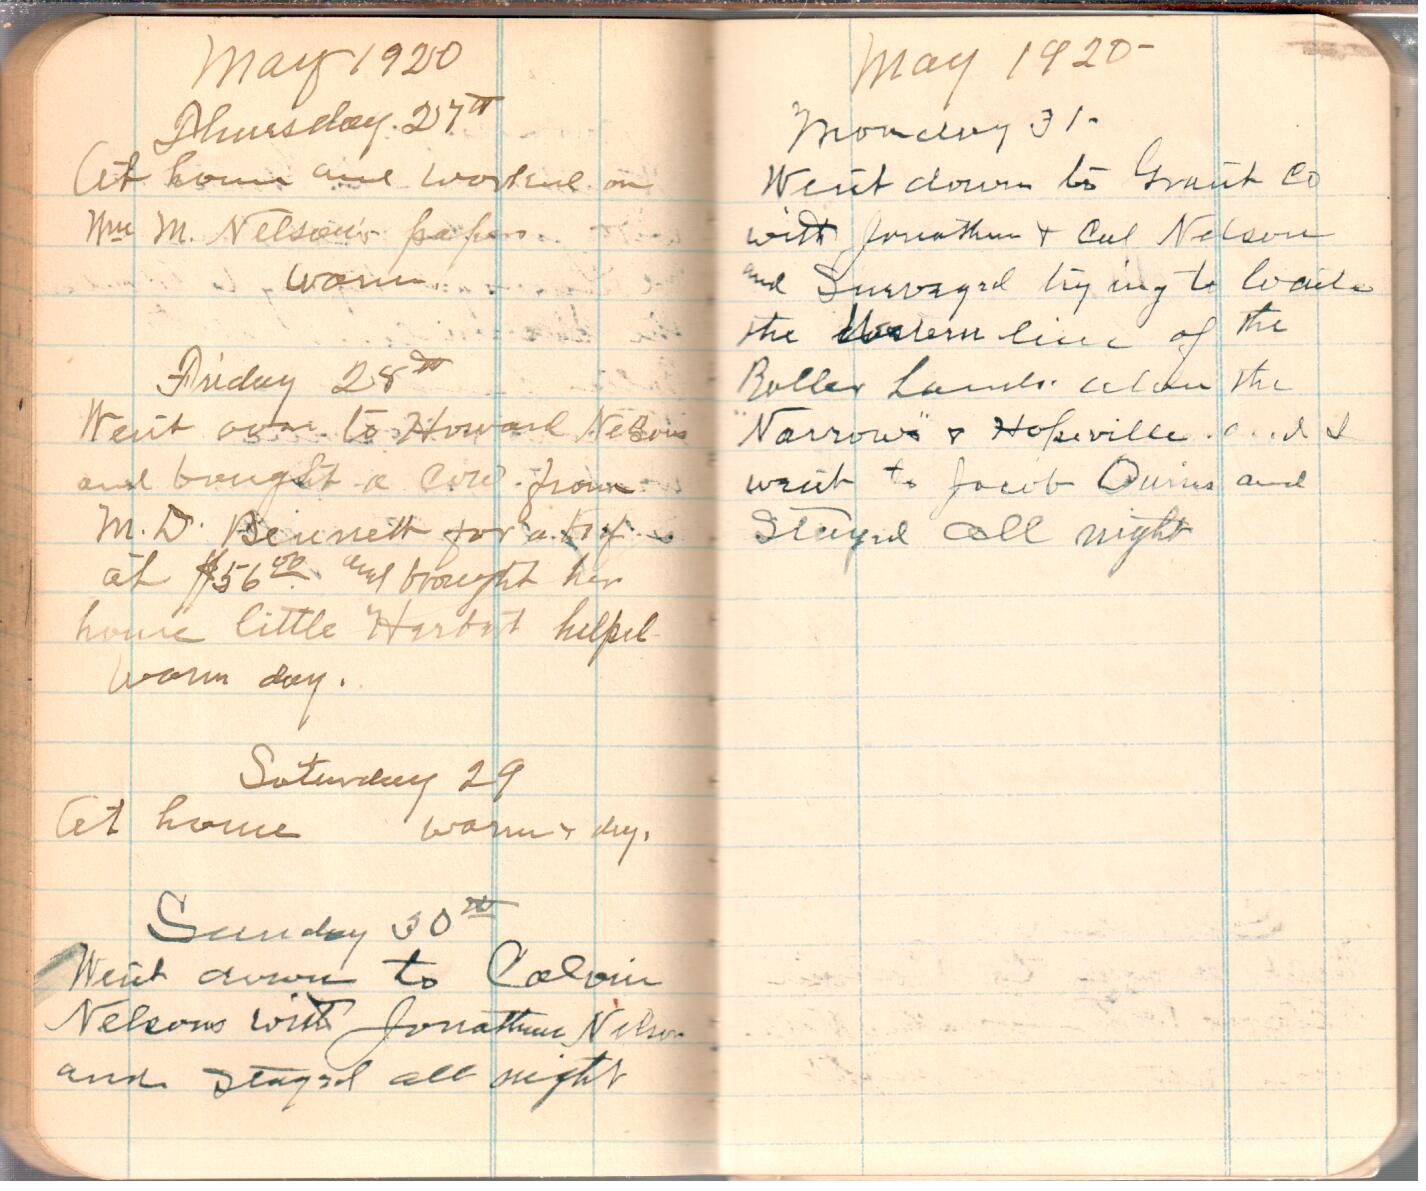 May 1920
Thursday 27th
At home and worked on
Wm M. Nelson's papers
warm.
Friday 28th
Went over to Howard Nelsons
and bought a cow from
M. D. Bennett for a
at $56.00 and brought her
home little Herbert helped
warm day.
Saturday 29
At home warm & dry.
Sunday 30th
Went down to Calvin
Nelsons with Jonathan Nelson
and stayed all night
May 1920-
Monday 31-
Went down to Grant Co
with Jonathan & Cal Nelson
and Surveyed trying to locate
the Western line of the
Boller Lands. the
"Narrows" & Hopeville. and I
went to Jacob and
Stayed all night